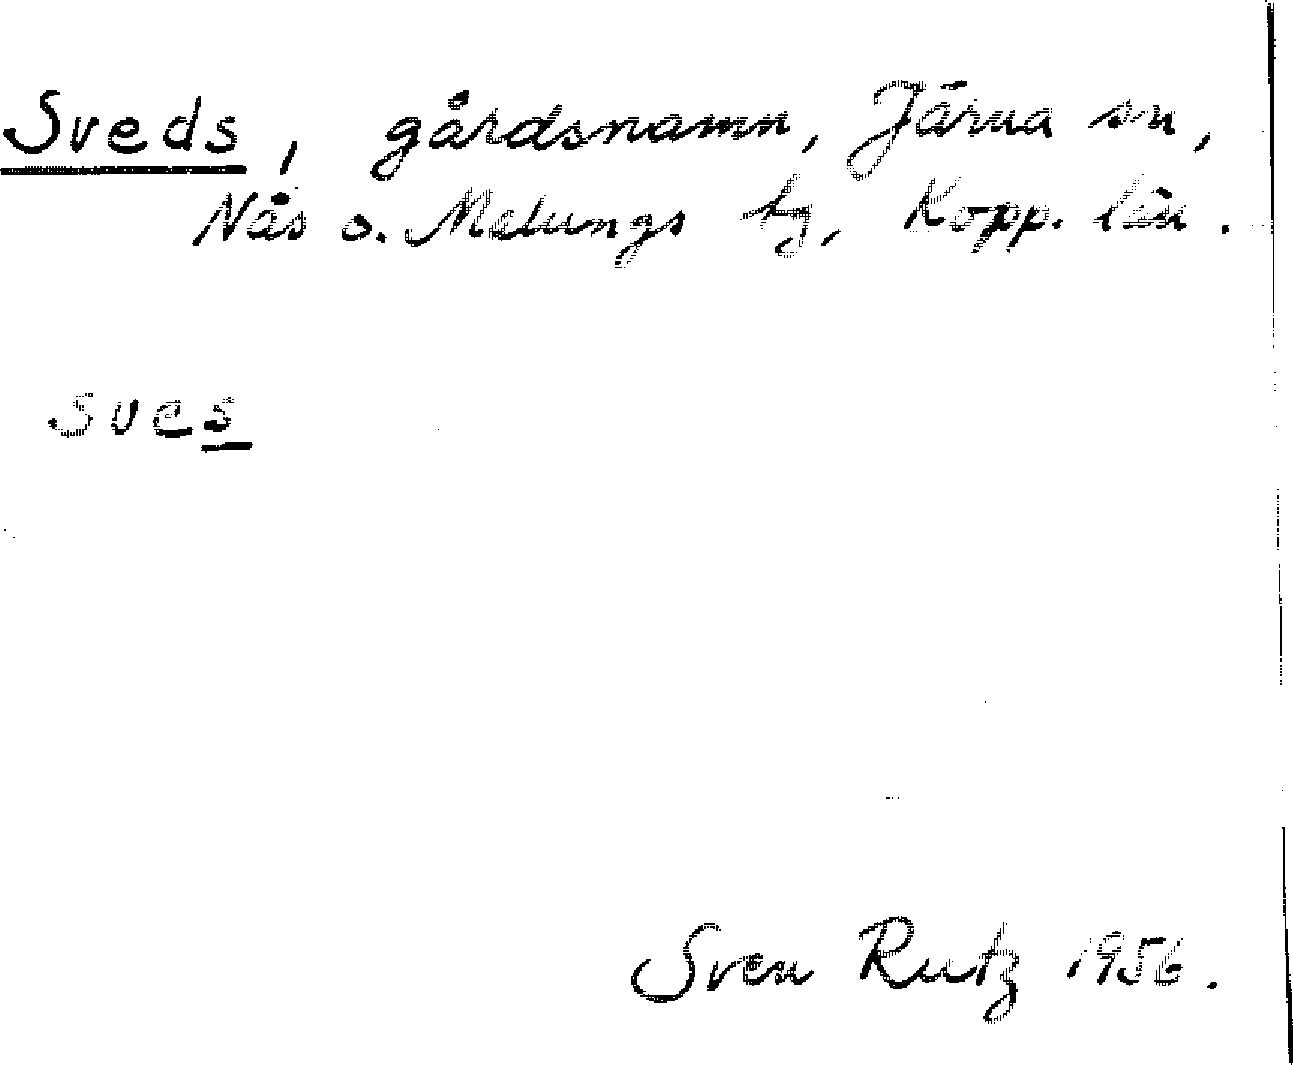 Sveds, gårdsnamn, Järna sn,
Nås o. Malungs hg, Kopp. län.
sves
Sven Rutz 1956.